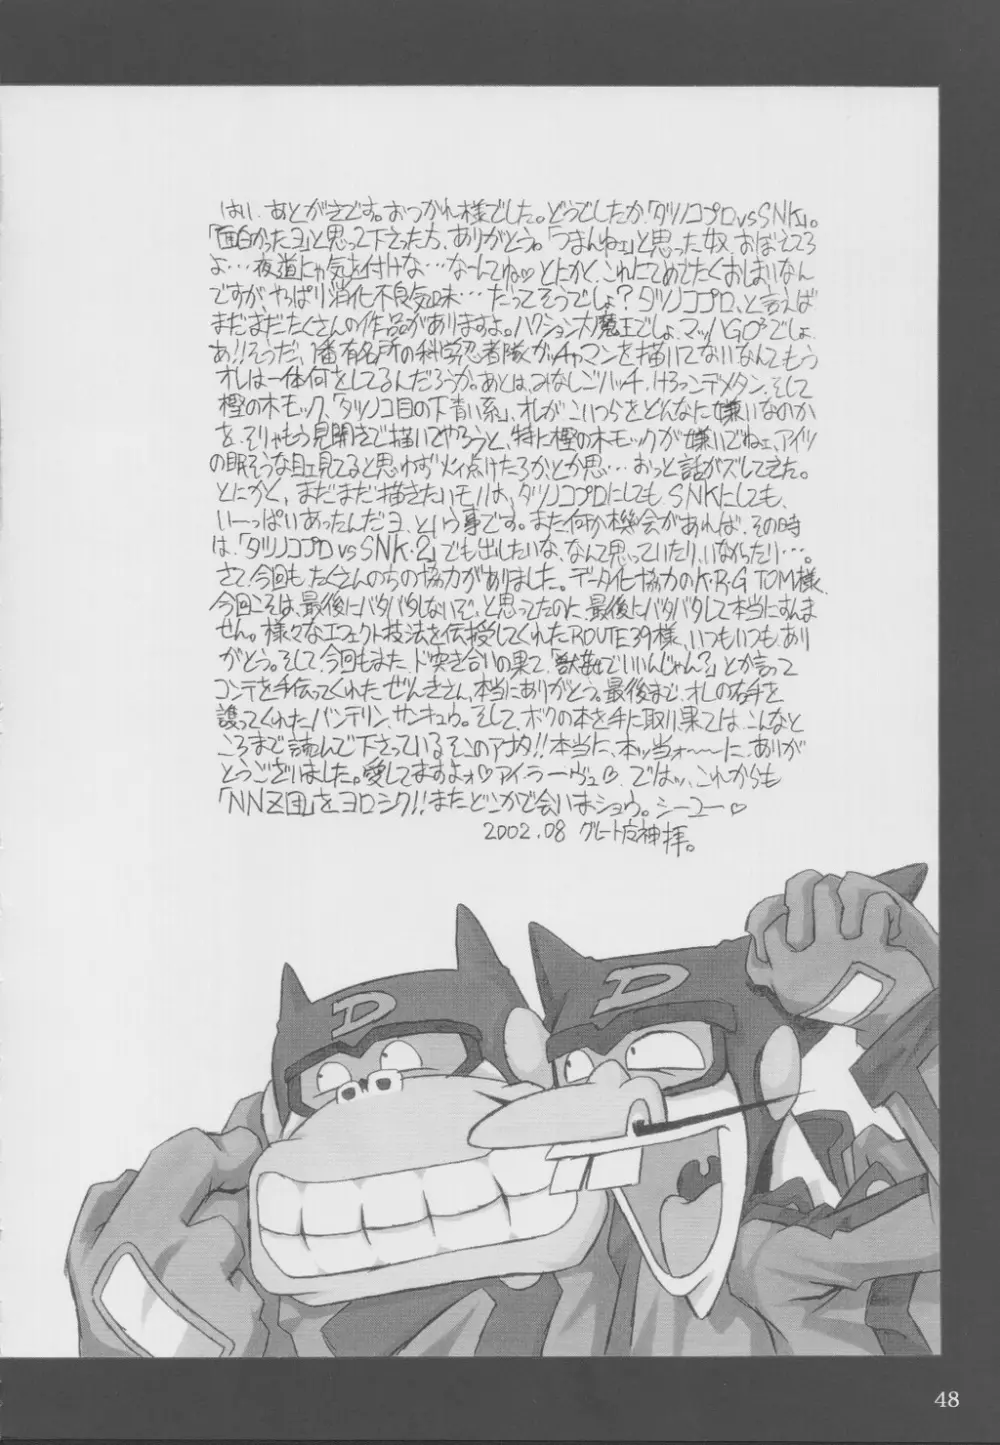 はい、あとがきです。おつかれ様でした。どうでしたか、「タツノコプロvsSNK」。
「面白かったヨ」と思って下さった方、ありがとう。「つまんねェ」と思った奴、おぼえてろ
よ…夜道にゃ気を付けな…なーんてね♡とにかく、これにてめでたくおしまいなん
ですが、やっぱり消化不良気味…だってそうでしょ？タツノコプロ、と言えば
まだまだたくさんの作品がありますよ。ハクション大魔王でしょ、マッハGO³でしょ、
あ!!そうだ、1番有名所の科学忍者隊ガッチャマンを描いてないなんてもう
オレは一体何をしてるんだろうか。あとは、みなしごハッチ、けろっこデメタン、そして
樫の木モック、「タツノコ目の下青い系」、オレがこいつらをどんなに嫌いなのか
を、そりゃもう見開きで描いてやろうと、特に樫の木モックが嫌いでねェ、アイツ
の眠そうな目ェ見てると思わず火ィ点けたろかとか思…おっと話がズレてきた。
とにかく、まだまだ描きたいモノは、タツノコプロにしてもSNKにしても、
いーっぱいあったんだヨ、という事です。また何か機会があれば、その時
は、「タツノコプロvsSNK・2」でも出したいな、なんて思っていたり、いなかったり…。
さて、今回も、たくさんのちの協力がありました。データ化協力のK・R・G TOM様、
今回こそは、最後にバタバタしないぞ、と思ってたのに、最後にバタバタして本当にすんま
せん。様々なエフェクト技法を伝授してくれたROUTE39様、いつもいつも、あり
がとう。そして、今回もまた、ド突き合いの果て、「獣姦でいいんじゃん？」とか言って
コンテを手伝ってくれた、ぜんきさん、本当にありがとう。最後まで、オレの右手を
護ってくれたバンテリン、サンキュウ。そして、ボクの本を手に取り、果ては、こんなと
ころまで読んで下さっているそこのアナタ!!本当に、本ッ当ォ〜〜〜に、ありが
とうございました。愛してますよォ♡アイ・ラーヴュ♡。ではッ、これからも
「NNZ団」をヨロシク!!またどこかで会いまショウ。シーユー♡
2002.08 グレート 神拝。
D
D
48